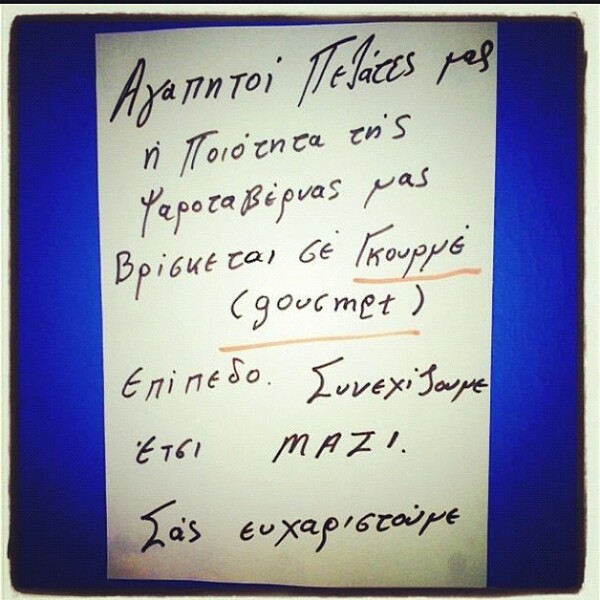 Αγαπητοί Πελάτες μας
ή Ποιότητα τής
Ψαροταβέρνας μας
Βρίσκεται σέ Γκουρμέ
(gourmet)
Επίπεδο. Συνεχίζουμε
έτσι ΜΑΖΙ.
Σάς ευχαριστούμε